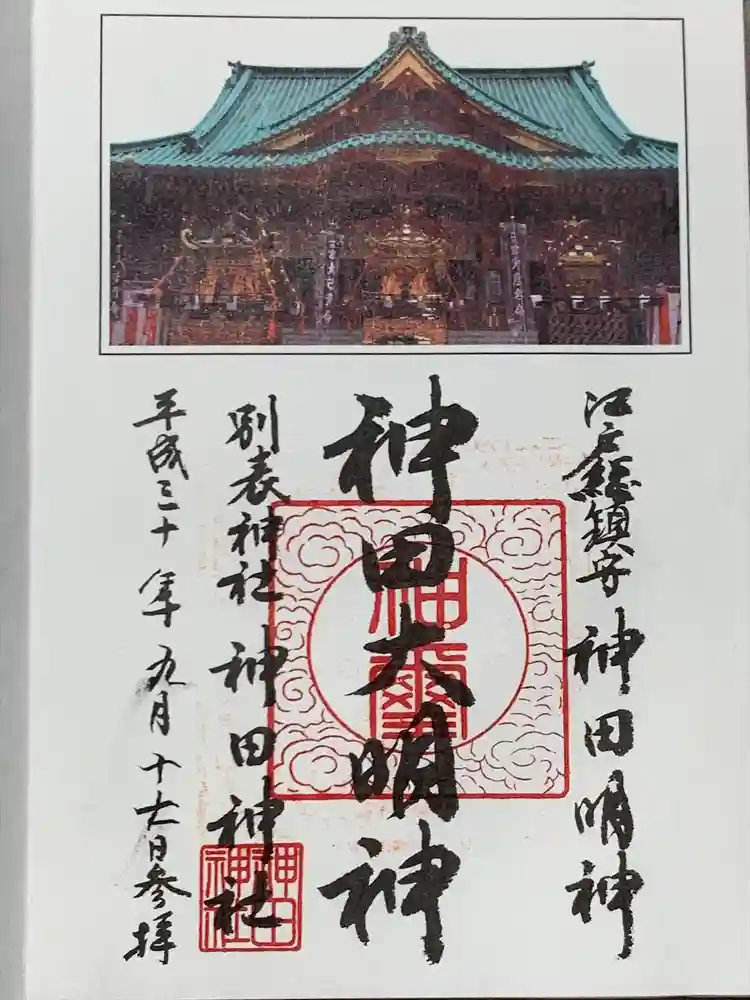 江戸総鎮守 神田明神
神田大明神
別表神社 神田神社
平成三十年 九月 十六日参拝
神田神社